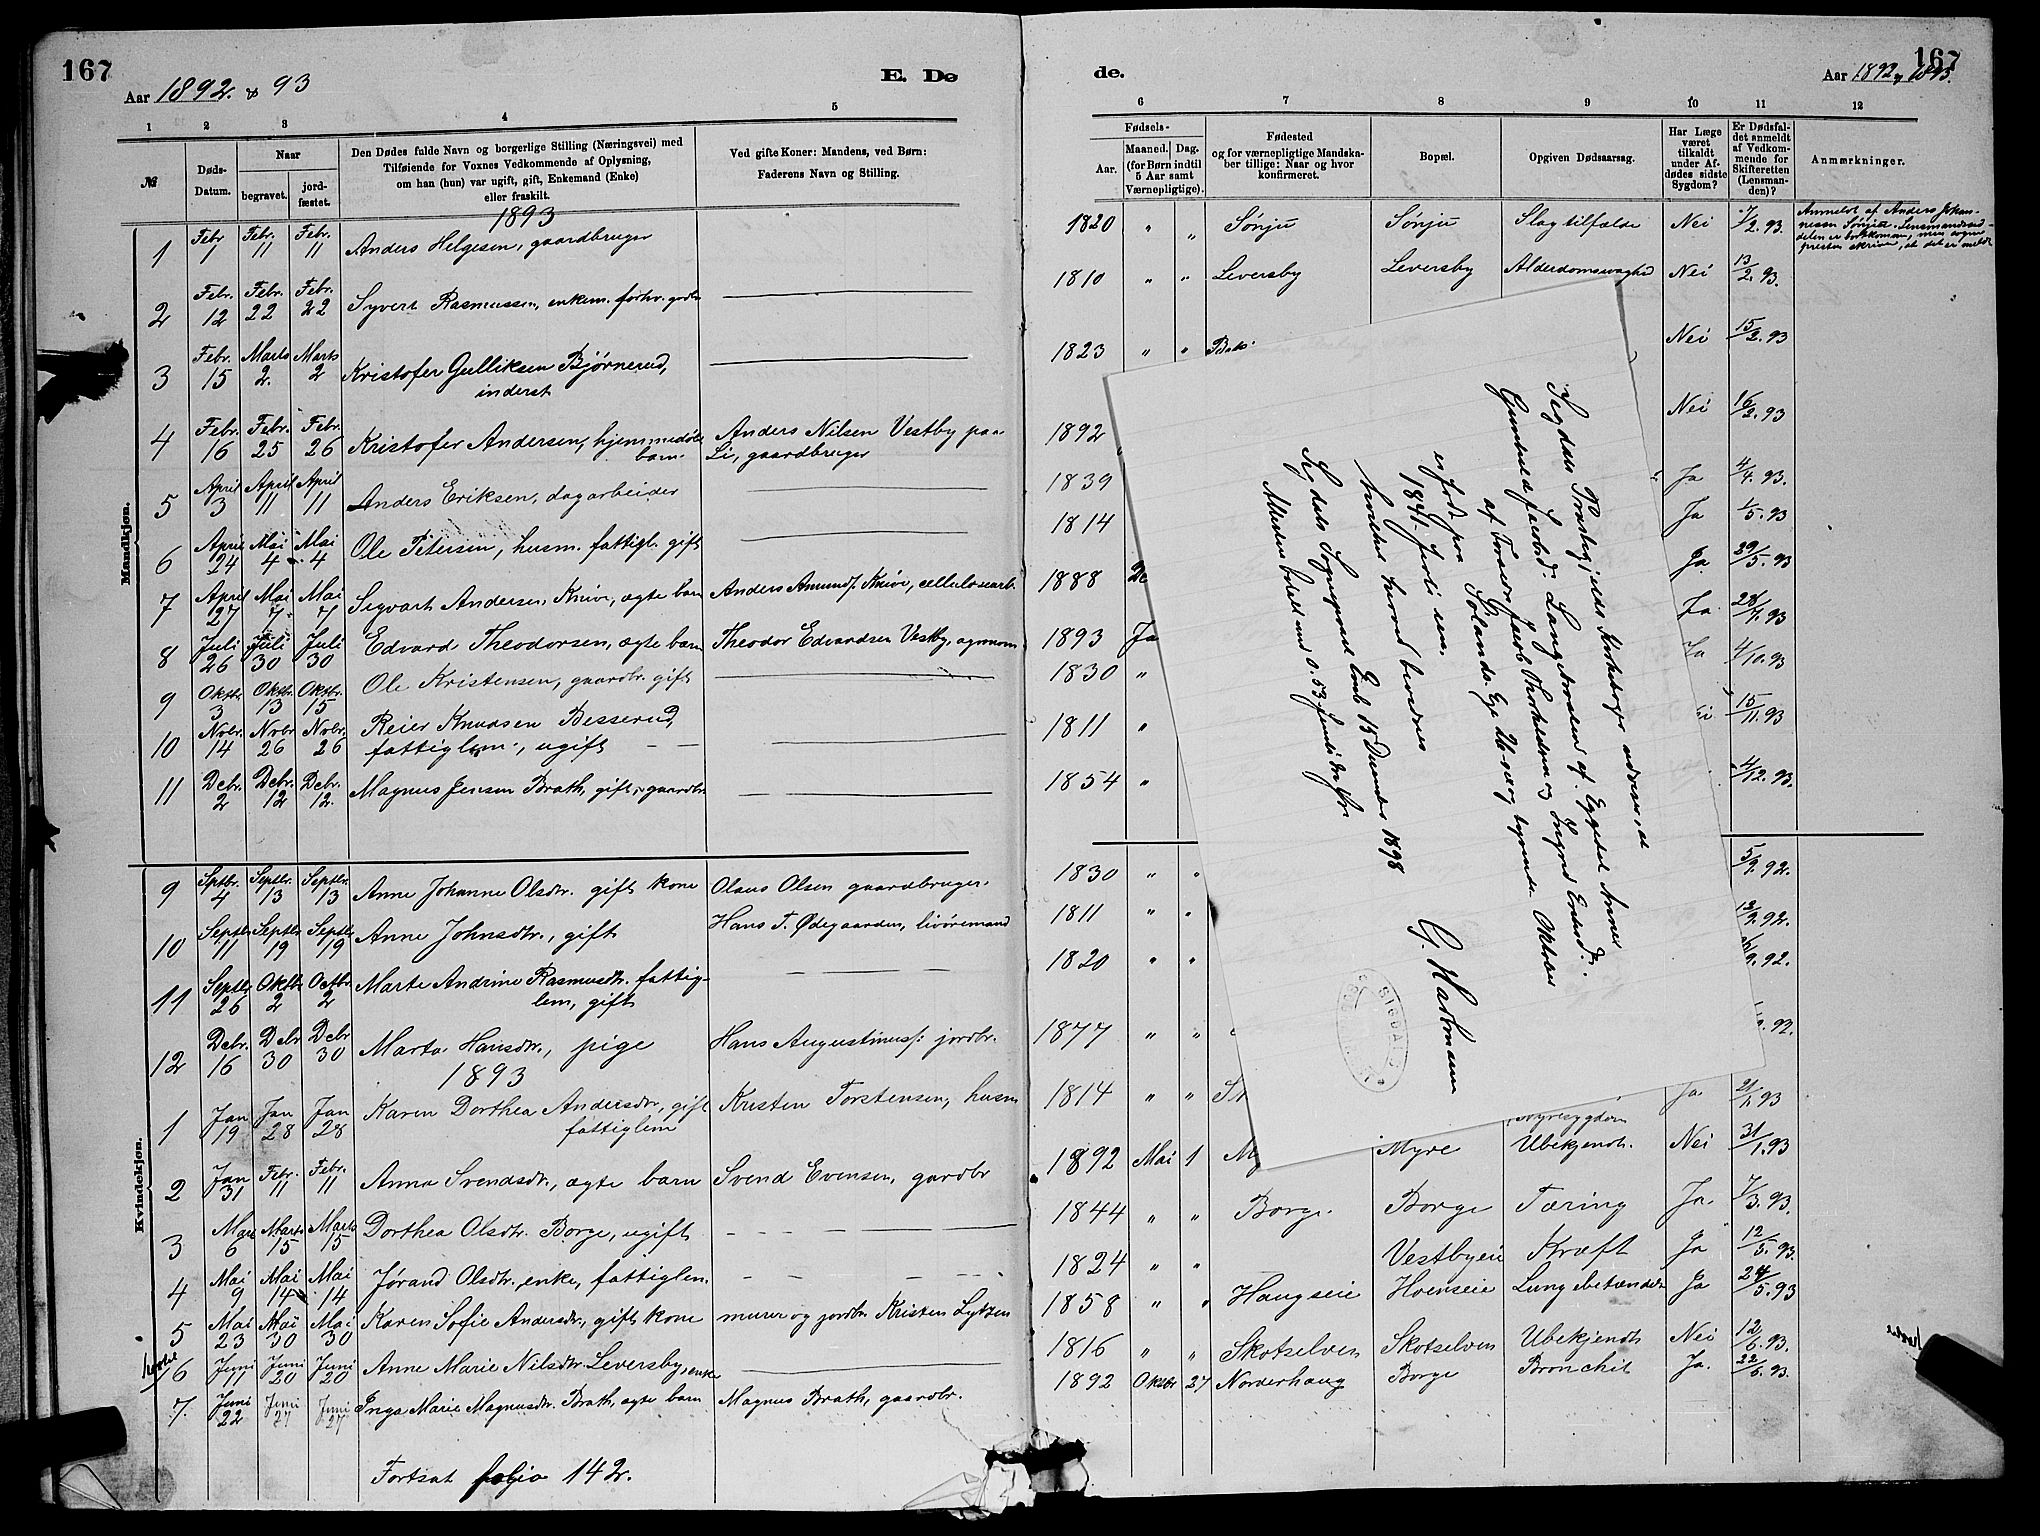 167
Aar 1892. & 93
E. Dø
1 2 3 4 5
№
Døds-
Datum.
Naar
begravet.
jord-
fæstet.
Den Dødes fulde Navn og borgerlige Stilling (Næringsvei) med
Tilføiende for Voxnes Vedkommende af Oplysning,
om han (hun) var ugift, gift, Enkemand (Enke)
eller fraskilt.
Ved gifte Koner: Mandens, ved Børn:
Faderens Navn og Stilling.
Mandkjøn.
1893
1 Febr 7 Febr. 11 Febr. 11 Anders Helgesen, gaardbruger
2 Febr. 12 Febr. 22 Febr. 22 Syvert Rasmussen, enkem. forhv. grdbr
3 Febr. 15 Marts 2. Marts 2 Kristofer Gulliksen Bjørnerud,
inderst
4 Febr. 16 Febr. 25 Febr. 26 Kristofer Andersen, hjemmedøbt Anders Nilsen Vestby paa
barn. Li, gaardbruger
5 April 3 April 11 April 11 Anders Eriksen, dagarbeider
6 April 24 Mai 4 Mai 4 Ole Petersen, husm. fattigl. gift
7 April 27 Mai 7 Mai 7 Sigvart Andersen Knive, ægte barn Anders Amunds. Knive, cellulosearb.
8 Juli 26 Juli 30 Juli 30 Edvard Theodorsen, ægte barn Theodor Edvardsen Vestby, agronom
9 Oktbr. 3 Oktbr. 13 Oktbr. 15 Ole Kristensen, gaardbr. gift
10 Novbr. 14 Novbr 26 Novbr. 26 Reier Knudsen Besserud,
fattiglem, ugift
11 Debr. 2 Debr. 12 Debr. 12. Magnus Jensen Brath, gift, gaardbr.
Kvindekjøn.
9 Sptbr. 4 Septbr. 13 Septbr. 13 Anne Johanne Olsdtr. gift kone Olaus Olsen gaardbruger.
10 Septbr 11 Septbr 19 Septbr 19 Anne Johnsdtr., gift Hans T. Ødegaarden, livøremand
11 Septbr 26 Oktbr 2 Octbr. 2 Marte Andrine Rasmusdtr. fattig-
lem, gift
12 Debr. 16 Debr 30 Debr 30 Marta Hansdtr., pige Hans Augustinuss: jordbr.
1893
1 Jan 19 Jan 28 Jan 28 Karen Dorthea Andersdtr, gift Kristen Torstensen, husm
fattiglem
2 Jan 31 Febr. 11 Febr. 11 Anna Svendsdtr., ægte barn Svend Evensen, gardbr
3 Mars 6 Marts 15 Marts 15 Dorthea Olsdtr. Borge, ugift
4 Mai 9 Mai 14 Mai 14 Jørand Olsdtr., enke, fattiglem.
5 Mai 23 Mai 30 Mai 30 Karen Sofie Andersdtr., gift kone murer og jordbr Kristen Lykzen
6 Juni 11 Juni 20 Juni 20 Anne Marie Nilsdtr. Leversby, enke
7. Juni 22 Juni 27 Juni 27 Inga Marie Magnusdtr. Brath, ægte barn Magnus Brath, gaardbr.
Fortsat folio 142.
de.
167
Aar 1892 og 1893.
6 7 8 9 10 11 12
Fødsels-
Aar.
Maaned. Dag.
(for Børn indtil
5 Aar samt
Værnepligtige).
Fødested
og for værnepligtige Mandska-
ber tillige: Naar og hvor
konfirmeret.
Bopæl.
Opgiven Dødsaarsag.
Har Læge
været
tilkaldt
under Af-
dødes sidste
Sygdom?
Er Dødsfal-
det anmeldt
af Vedkom-
mende for
Skifteretten
(Lensman-
den)?
Anmærkninger.
1820 " " Sønju Sønju Slagtilfælde Nei 7/2.93.
Anmeldt af Anders Johan-
nesen Sønju. Lensmandssed-
delen er bortkommen, men sogne
presten skriver, at det er meldt
1810 " " Leversby Leversby Alderdomssvaghed Nei 13/2.93.
1823 " " Nei 15/2.93
1892 Nei 16/2.93
1839 Ja 4/4.93.
1814 Ja 1/5.93
1888 De Ja 29/5.93
Ja. 28/7.93
1893 Ja Ja 4/10.93
1830 "
1811 " 15/11.93
1854 " 4/12.93.
1830 " " 5/9.92.
1811 " " 12/9.92.
1820 " "
1877 " "
1814 " " Ja. 21/1.93
1892 Mai 1 My Myre Ubekjendt. Nei 31/1.93
1844 " " Borge. Borge Tæring Ja. 7/3.93.
1824 " " Vestbyeie Kræft Ja 12/5.93.
1858 " " Haugseie Hoenseie Lungebetændels Ja 24/5.93
1816 " " Skotselven Skotselven Ubekjendt Nei 12/6.93.
1892 Oktbr 27 Norderhaug Borge Bronchit Ja. 22/6.93.
Sigdals Præstegjelds Kirkebøger udvise, at
Gunhild Jacobsd: Langebraaten af Eggedal Annex
af Forældre Jacob Thorkelsen og Ingrid Eriksd:
er født paa Solands. Eje 26 og tyvende Oktober
1841
hvilket herved bevidnes
Sigdals Sogneprest Emb 15 December 1898
G. Hartmann
SIGDALS